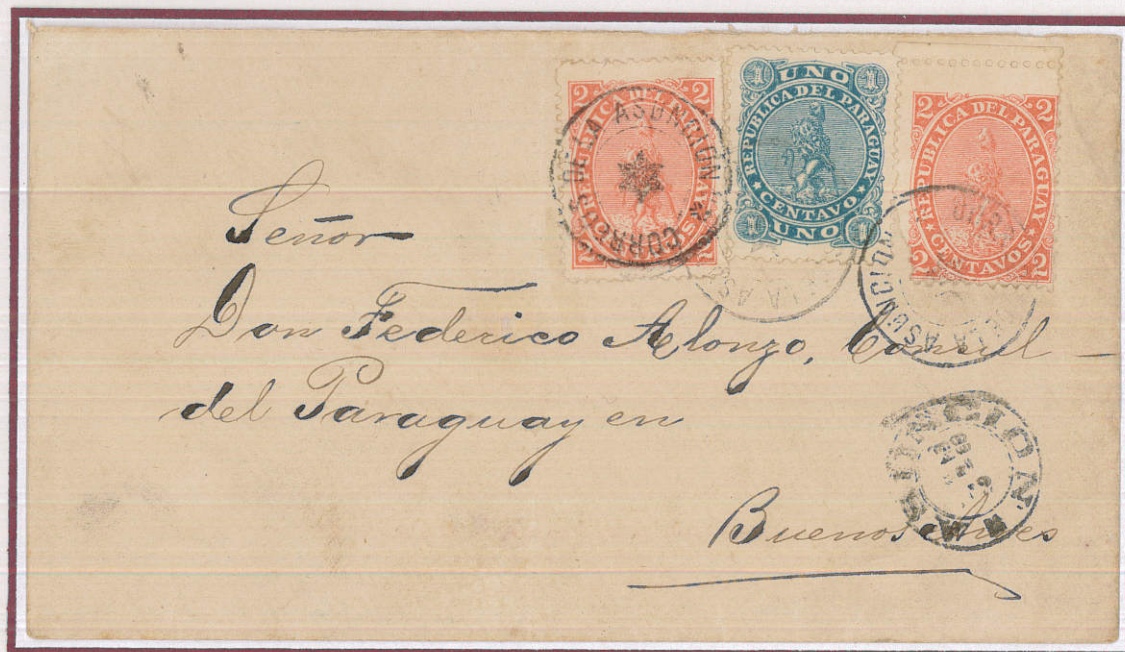 2 REPUBLICA DEL PARAGUAY 2
2 CENTAVOS 2
CORREOS DE LA ASUNCION
1 UNO 1
REPUBLICA DEL PARAGUAY
CENTAVO
1 UNO 1
2 REPUBLICA DEL PARAGUAY 2
2 CENTAVOS 2
LA AS
DE LA ASUNCION
Señor
Don Federico Alonzo, Consul
del Paraguay en
ASUNCION
Buenos Aires